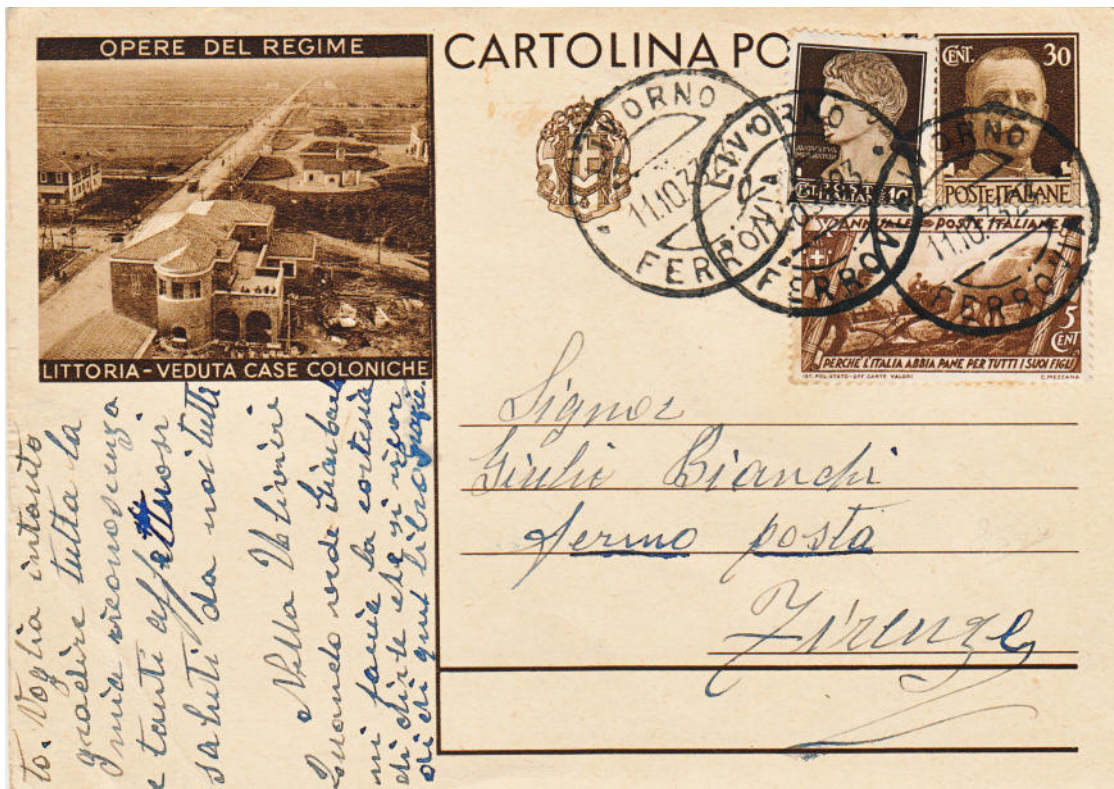 OPERE DEL REGIME
LITTORIA - VEDUTA CASE COLONICHE
CARTOLINA PO
CENT. 30
POSTE ITALIANE
LIVORNO
11.10.32
FERROVIA
LIVORNO
FERROVIA
LIVORNO
11.10.32
FERROVIA
X ANNUALE POSTE ITALIANE
5 CENT
PERCHE L'ITALIA ABBIA PANE PER TUTTI I SUOI FIGLI
IST. POL. STATO - OFF. CARTE VALORI
C. MEZZANA
Signor
Giulio Bianchi
fermo posta
Firenze
to. Voglia intanto
gradire tutta la
mia riconoscenza
e tanti affettuosi
saluti da noi tutti
Quando vede
mi faccia la cortesia
di dirle che si
di quei libri grazie.